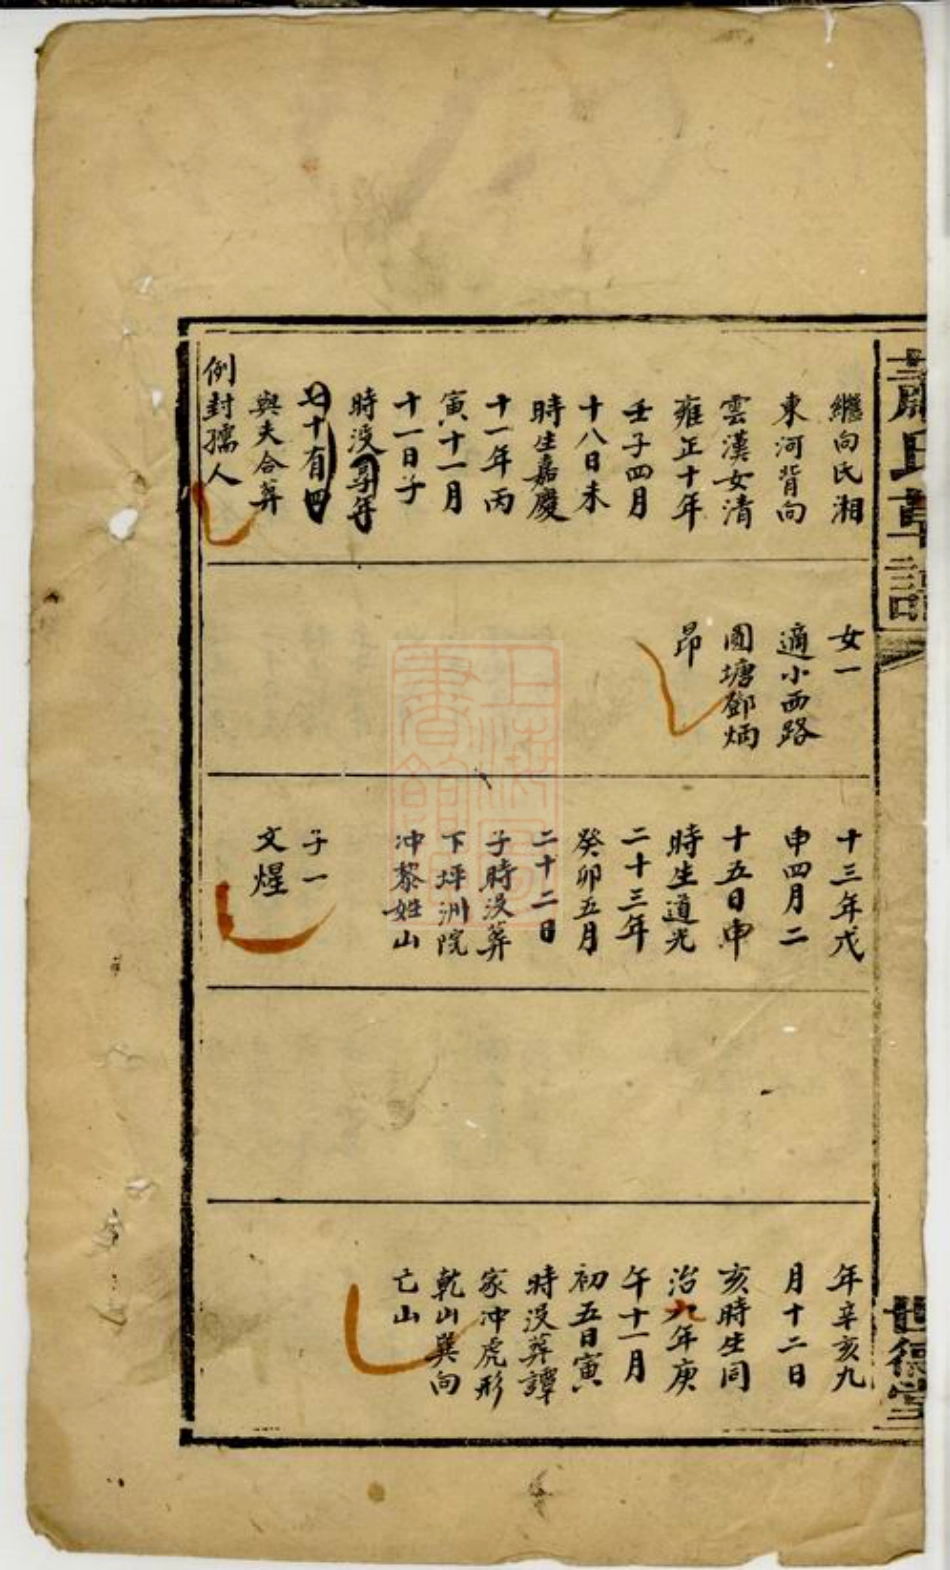 蕭氏章譜
世德堂
繼向氏湘
東河背向
雲漢女清
雍正十年
壬子四月
十八日未
時生嘉慶
十一年丙
寅十一月
十一日子
時没享年
七十有四
與夫合葬
例封孺人
女一
適小西路
圓塘鄧炳
昂
十三年戊
申四月二
十五日申
時生道光
二十三年
癸卯五月
二十二日
子時没葬
下坪洲院
冲黎姓山
子一
文煋
年辛亥九
月十二日
亥時生同
治九年庚
午十一月
初五日寅
時没葬譚
家冲虎形
乾山巽向
亡山
上海圖書館藏